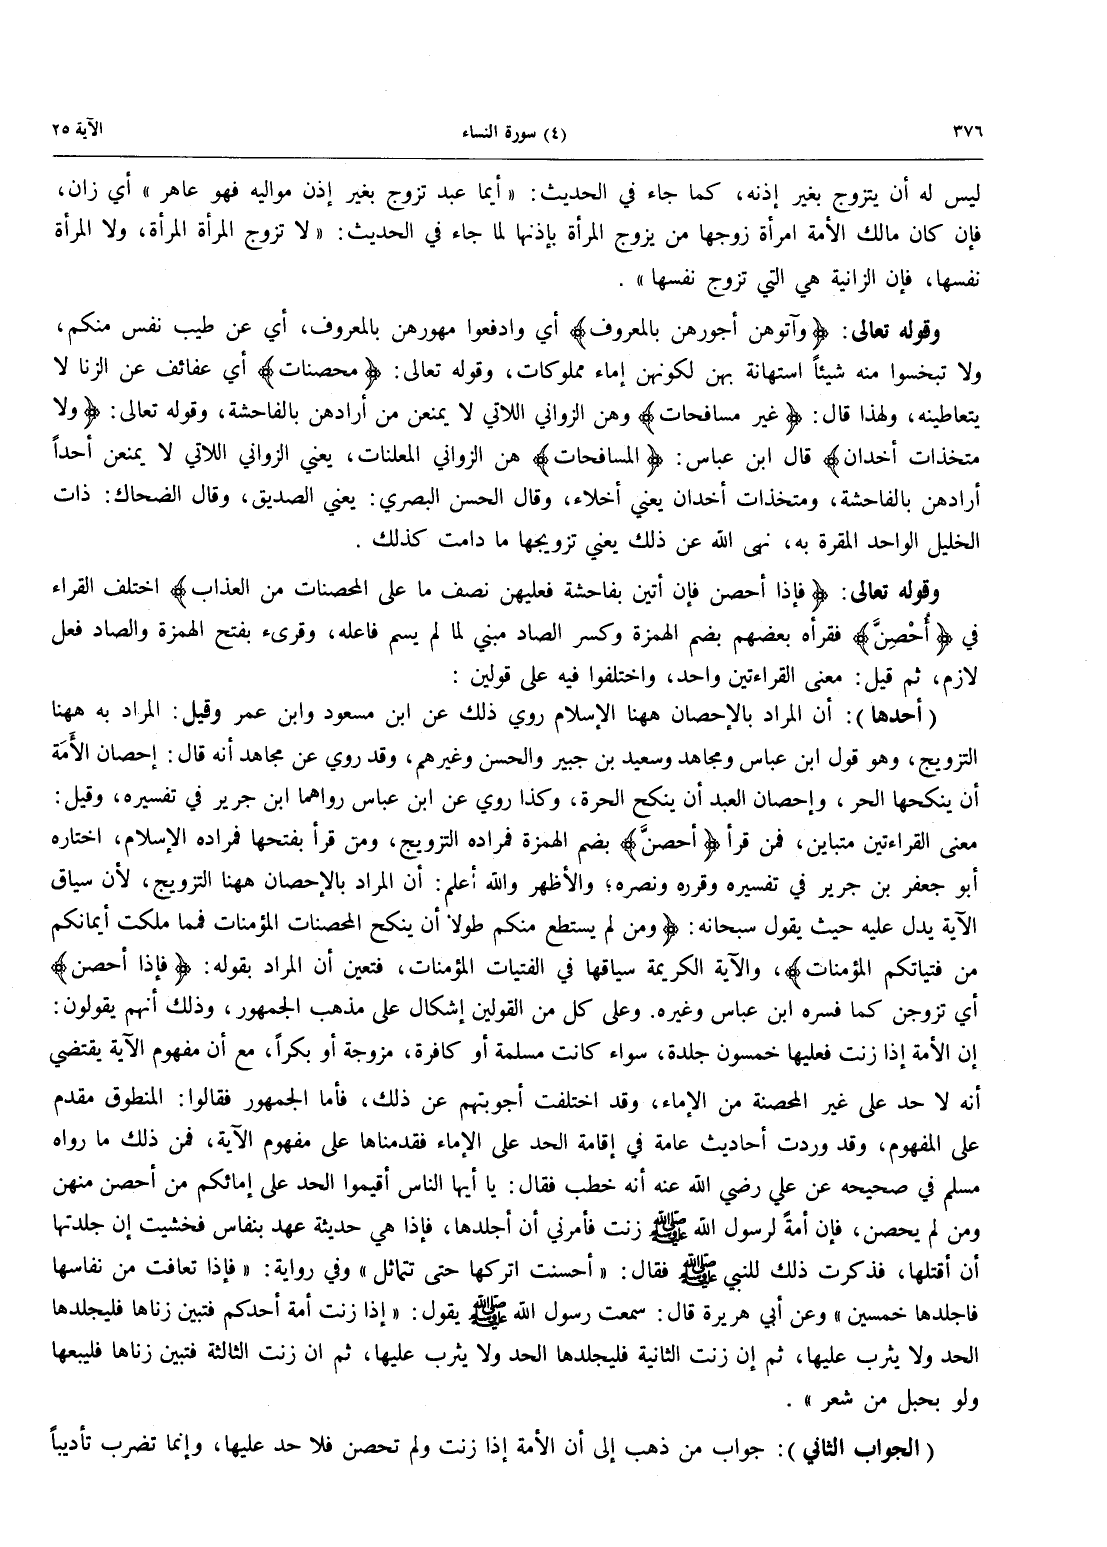 ٣٧٦ (٤) سورة النساء الآية ٢٥
ليس له أن يتزوج بغير إذنه، كما جاء في الحديث: « أيما عبد تزوج بغير إذن مواليه فهو عاهر » أي زان،
فإن كان مالك الأمة امرأة زوجها من يزوج المرأة بإذنها لما جاء في الحديث: « لا تزوج المرأة المرأة، ولا المرأة
نفسها، فإن الزانية هي التي تزوج نفسها » .
وقوله تعالى: ﴿ وآتوهن أجورهن بالمعروف﴾ أي وادفعوا مهورهن بالمعروف، أي عن طيب نفس منكم،
ولا تبخسوا منه شيئاً استهانة بهن لكونهن إماء مملوكات، وقوله تعالى: ﴿ محصنات﴾ أي عفائف عن الزنا لا
يتعاطينه، ولهذا قال: ﴿ غير مسافحات﴾ وهن الزواني اللاتي لا يمنعن من أرادهن بالفاحشة، وقوله تعالى: ﴿ ولا
متخذات أخدان﴾ قال ابن عباس: ﴿ المسافحات﴾ هن الزواني المعلنات، يعني الزواني اللاتي لا يمنعن أحداً
أرادهن بالفاحشة، ومتخذات أخدان يعني أخلاء، وقال الحسن البصري: يعني الصديق، وقال الضحاك: ذات
الخليل الواحد المقرة به، نهى الله عن ذلك يعني تزويجها ما دامت كذلك .
وقوله تعالى: ﴿ فإذا أحصن فإن أتين بفاحشة فعليهن نصف ما على المحصنات من العذاب﴾ اختلف القراء
في ﴿ أُحْصِنَّ﴾ فقرأه بعضهم بضم الهمزة وكسر الصاد مبني لما لم يسم فاعله، وقرىء بفتح الهمزة والصاد فعل
لازم، ثم قيل: معنى القراءتين واحد، واختلفوا فيه على قولين :
( أحدها ): أن المراد بالإحصان ههنا الإسلام روي ذلك عن ابن مسعود وابن عمر وقيل: المراد به ههنا
التزويج، وهو قول ابن عباس ومجاهد وسعيد بن جبير والحسن وغيرهم، وقد روي عن مجاهد أنه قال: إحصان الأَمَة
أن ينكحها الحر ، وإحصان العبد أن ينكح الحرة، وكذا روي عن ابن عباس رواهما ابن جرير في تفسيره، وقيل:
معنى القراءتين متباين، فمن قرأ ﴿ أحصنَّ﴾ بضم الهمزة فمراده التزويج، ومن قرأ بفتحها فمراده الإسلام، اختاره
أبو جعفر بن جرير في تفسيره وقرره ونصره؛ والأظهر والله أعلم: أن المراد بالإحصان ههنا التزويج، لأن سياق
الآية يدل عليه حيث يقول سبحانه: ﴿ ومن لم يستطع منكم طولاً أن ينكح المحصنات المؤمنات فمما ملكت أيمانكم
من فتياتكم المؤمنات﴾، والآية الكريمة سياقها في الفتيات المؤمنات، فتعين أن المراد بقوله: ﴿ فإذا أحصن﴾
أي تزوجن كما فسره ابن عباس وغيره. وعلى كل من القولين إشكال على مذهب الجمهور، وذلك أنهم يقولون:
إن الأمة إذا زنت فعليها خمسون جلدة، سواء كانت مسلمة أو كافرة، مزوجة أو بكراً، مع أن مفهوم الآية يقتضي
أنه لا حد على غير المحصنة من الإماء، وقد اختلفت أجوبتهم عن ذلك، فأما الجمهور فقالوا: المنطوق مقدم
على المفهوم، وقد وردت أحاديث عامة في إقامة الحد على الإماء فقدمناها على مفهوم الآية، فمن ذلك ما رواه
مسلم في صحيحه عن علي رضي الله عنه أنه خطب فقال: يا أيها الناس أقيموا الحد على إمائكم من أحصن منهن
ومن لم يحصن، فإن أمةً لرسول الله ﷺ زنت فأمرني أن أجلدها، فإذا هي حديثة عهد بنفاس فخشيت إن جلدتها
أن أقتلها، فذكرت ذلك للنبي ﷺ فقال: « أحسنت اتركها حتى تتماثل » وفي رواية: « فإذا تعافت من نفاسها
فاجلدها خمسين » وعن أبي هريرة قال: سمعت رسول الله ﷺ يقول: « إذا زنت أمة أحدكم فتبين زناها فليجلدها
الحد ولا يثرب عليها، ثم إن زنت الثانية فليجلدها الحد ولا يثرب عليها، ثم ان زنت الثالثة فتبين زناها فليبعها
ولو بحبل من شعر » .
( الجواب الثاني ): جواب من ذهب إلى أن الأمة إذا زنت ولم تحصن فلا حد عليها، وإنما تضرب تأديباً